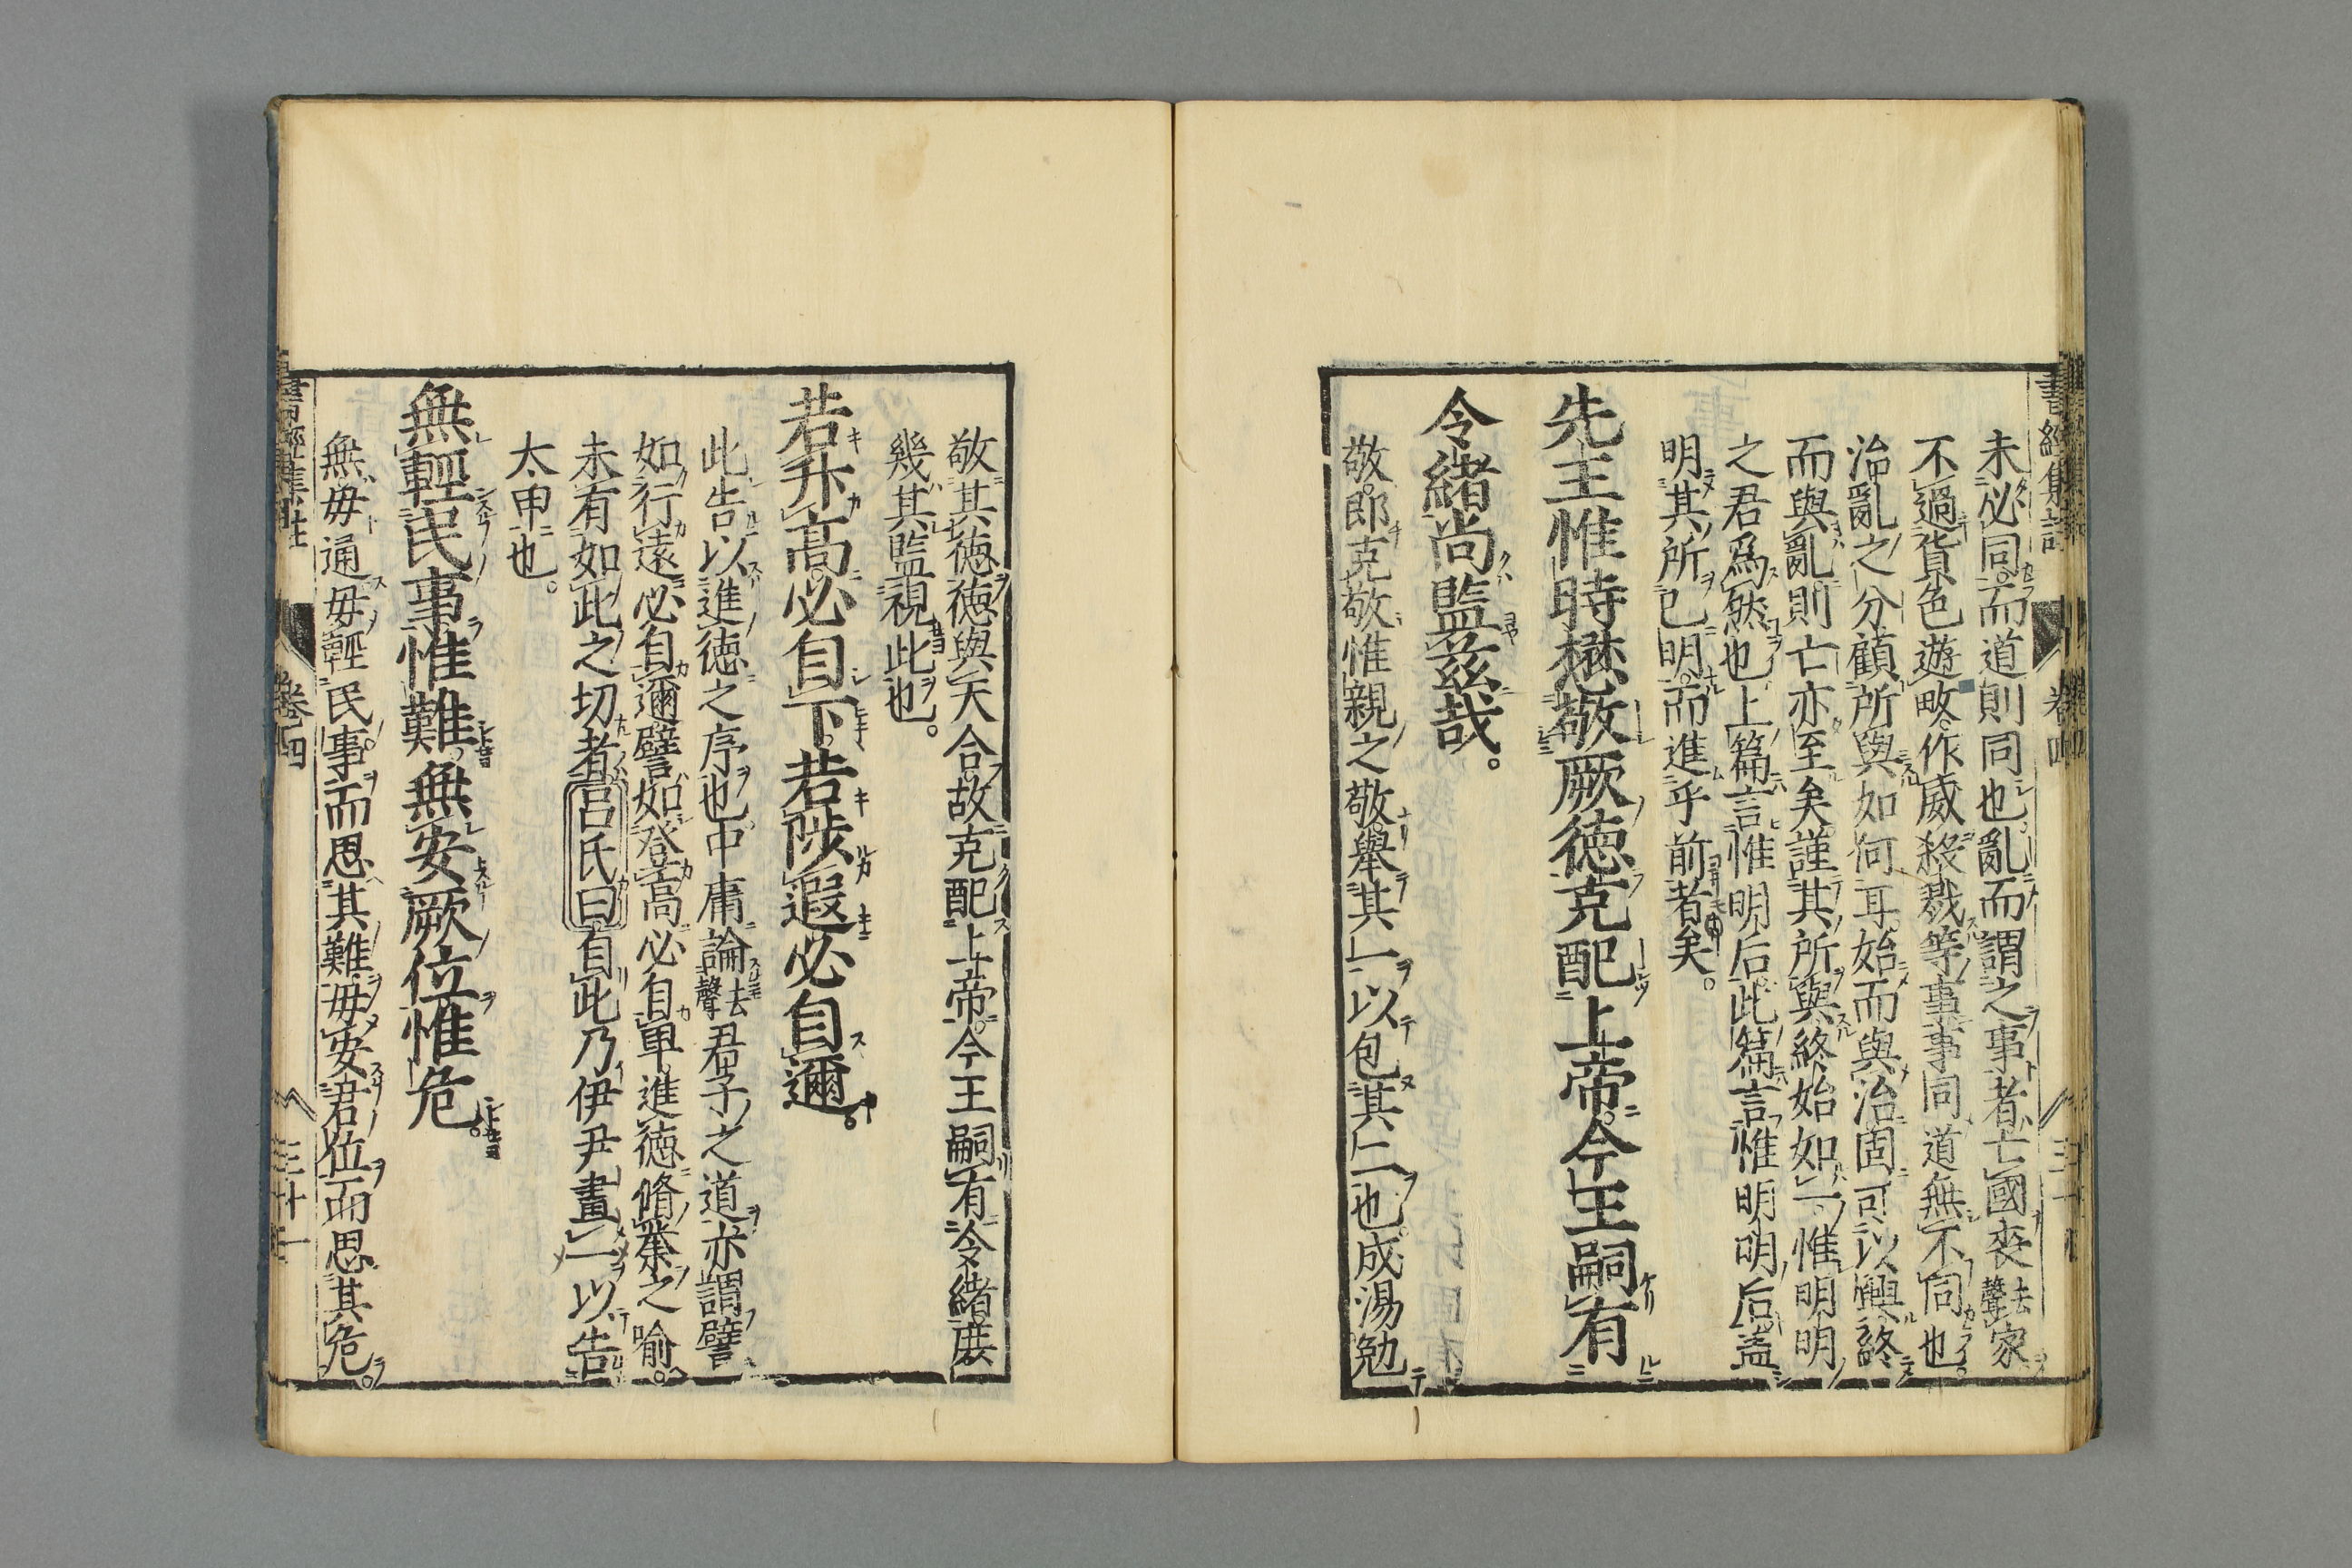 書經集註 卷四
未必同而道則同也亂而謂之事者亡國喪去聲家
不過貨色遊畋作威殺戮等事事同道無不同也。
治亂之分顧所與如何耳始而與治固可以興終
而與亂則亡亦至矣謹其所與終始如一惟明明
之君爲然也上篇言惟明后此篇言惟明明后蓋
明其所已明而進乎前者矣。
先王惟時懋敬厥德克配上帝今王嗣有
令緒尚監茲哉。
敬即克敬惟親之敬舉其一以包其二也成湯勉
敬其德德與天合故克配上帝今王嗣有令緒庶
幾其監視此也。
若升高必自下若陟遐必自邇。
此告以進德之序也中庸論去聲君子之道亦謂譬
如行遠必自邇譬如登高必自卑進德脩業之喻。
未有如此之切者呂氏曰自此乃伊尹畫一以告
太甲也。
無輕民事惟難無安厥位惟危。
無毋通毋輕民事而思其難毋安君位而思其危。
書經集註 卷四 三十一